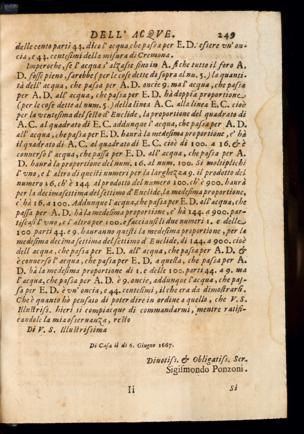 DELL' ACQVE. 249
delle cento parti 44. dico l'acqua, che passa per E. D. essere vn'on-
cia, e 44. centesimi della misura di Cremona.
Imperoche, se l'acqua s'alzasse sino in A. si che tutto il foro A.
D. fosse pieno, sarebbe (per le cose dette di sopra al nu. 5.) la quanti-
tà dell'acqua, che passa per A. D. oncie 9. ma l'acqua, che passa
per A. D. all'acqua, che passa per E. D. hà doppia proportione
(per le cose dette al num. 5.) della linea A. C. alla linea E. C. cioè
per la ventesima del sesto d'Euclide, la proportione del quadrato di
A. C. al quadrato di E. C. adunque l'acqua, che passa per A. D.
all'acqua, che passa per E. D. haurà la medesima proportione, c'hà
il quadrato di A. C. al quadrato di E. C. cioè di 100. a 16, & è
conuerso l'acqua, che passa per E. D. all'acqua, che passa per A.
D. haurà la proportione del num. 16. al num. 100. Si moltiplichi
l'vno, e l'altro di questi numeri per la larghezza 9. il prodotto del
numero 16, ch'è 144. al prodotto del numero 100. ch'è 900, haurà
per la decimasettima del settimo d'Euclide, la medesima proportione,
c'hà 16. a 100. Addunque l'acqua, che passa per E. D. all'acqua, che
passa per A. D. hà la medesima proportione, c'hà 144. a 900. par-
tiscasi l'vno, e l'altro per 100. e facciansi li due numeri 1. e delle
100 parti 44. e 9. hauranno questi la medesima proportione, per la
medesima decima settima del settimo d'Euclide, di 144. a 900. cioè
dell'acqua, che passa per E. D. all'acqua, che passa per A. D. &
è conuerso l'acqua, che passa per E. D. a quella, che passa per A.
D. hà la medesima proportione di 1. e delle 100. parti 44. a 9. ma
l'acqua, che passa per A. D. è 9. oncie, addunque l'acqua, che pas-
sa per E. D. è vn'oncia, e 44. centesimi, il che era da dimostrarsi.
Che è quanto hò pensato di poter dire in ordine a quello, che V. S.
Illustriss. hieri si compiacque di commandarmi, mentre ratifi-
candole la mia osseruanza, resto
Di V. S. Illustrissima
Di Casa il dì 6. Giugno 1667.
Diuotiss. & Obligatiss. Ser.
Sigismondo Ponzoni.
Ii Si